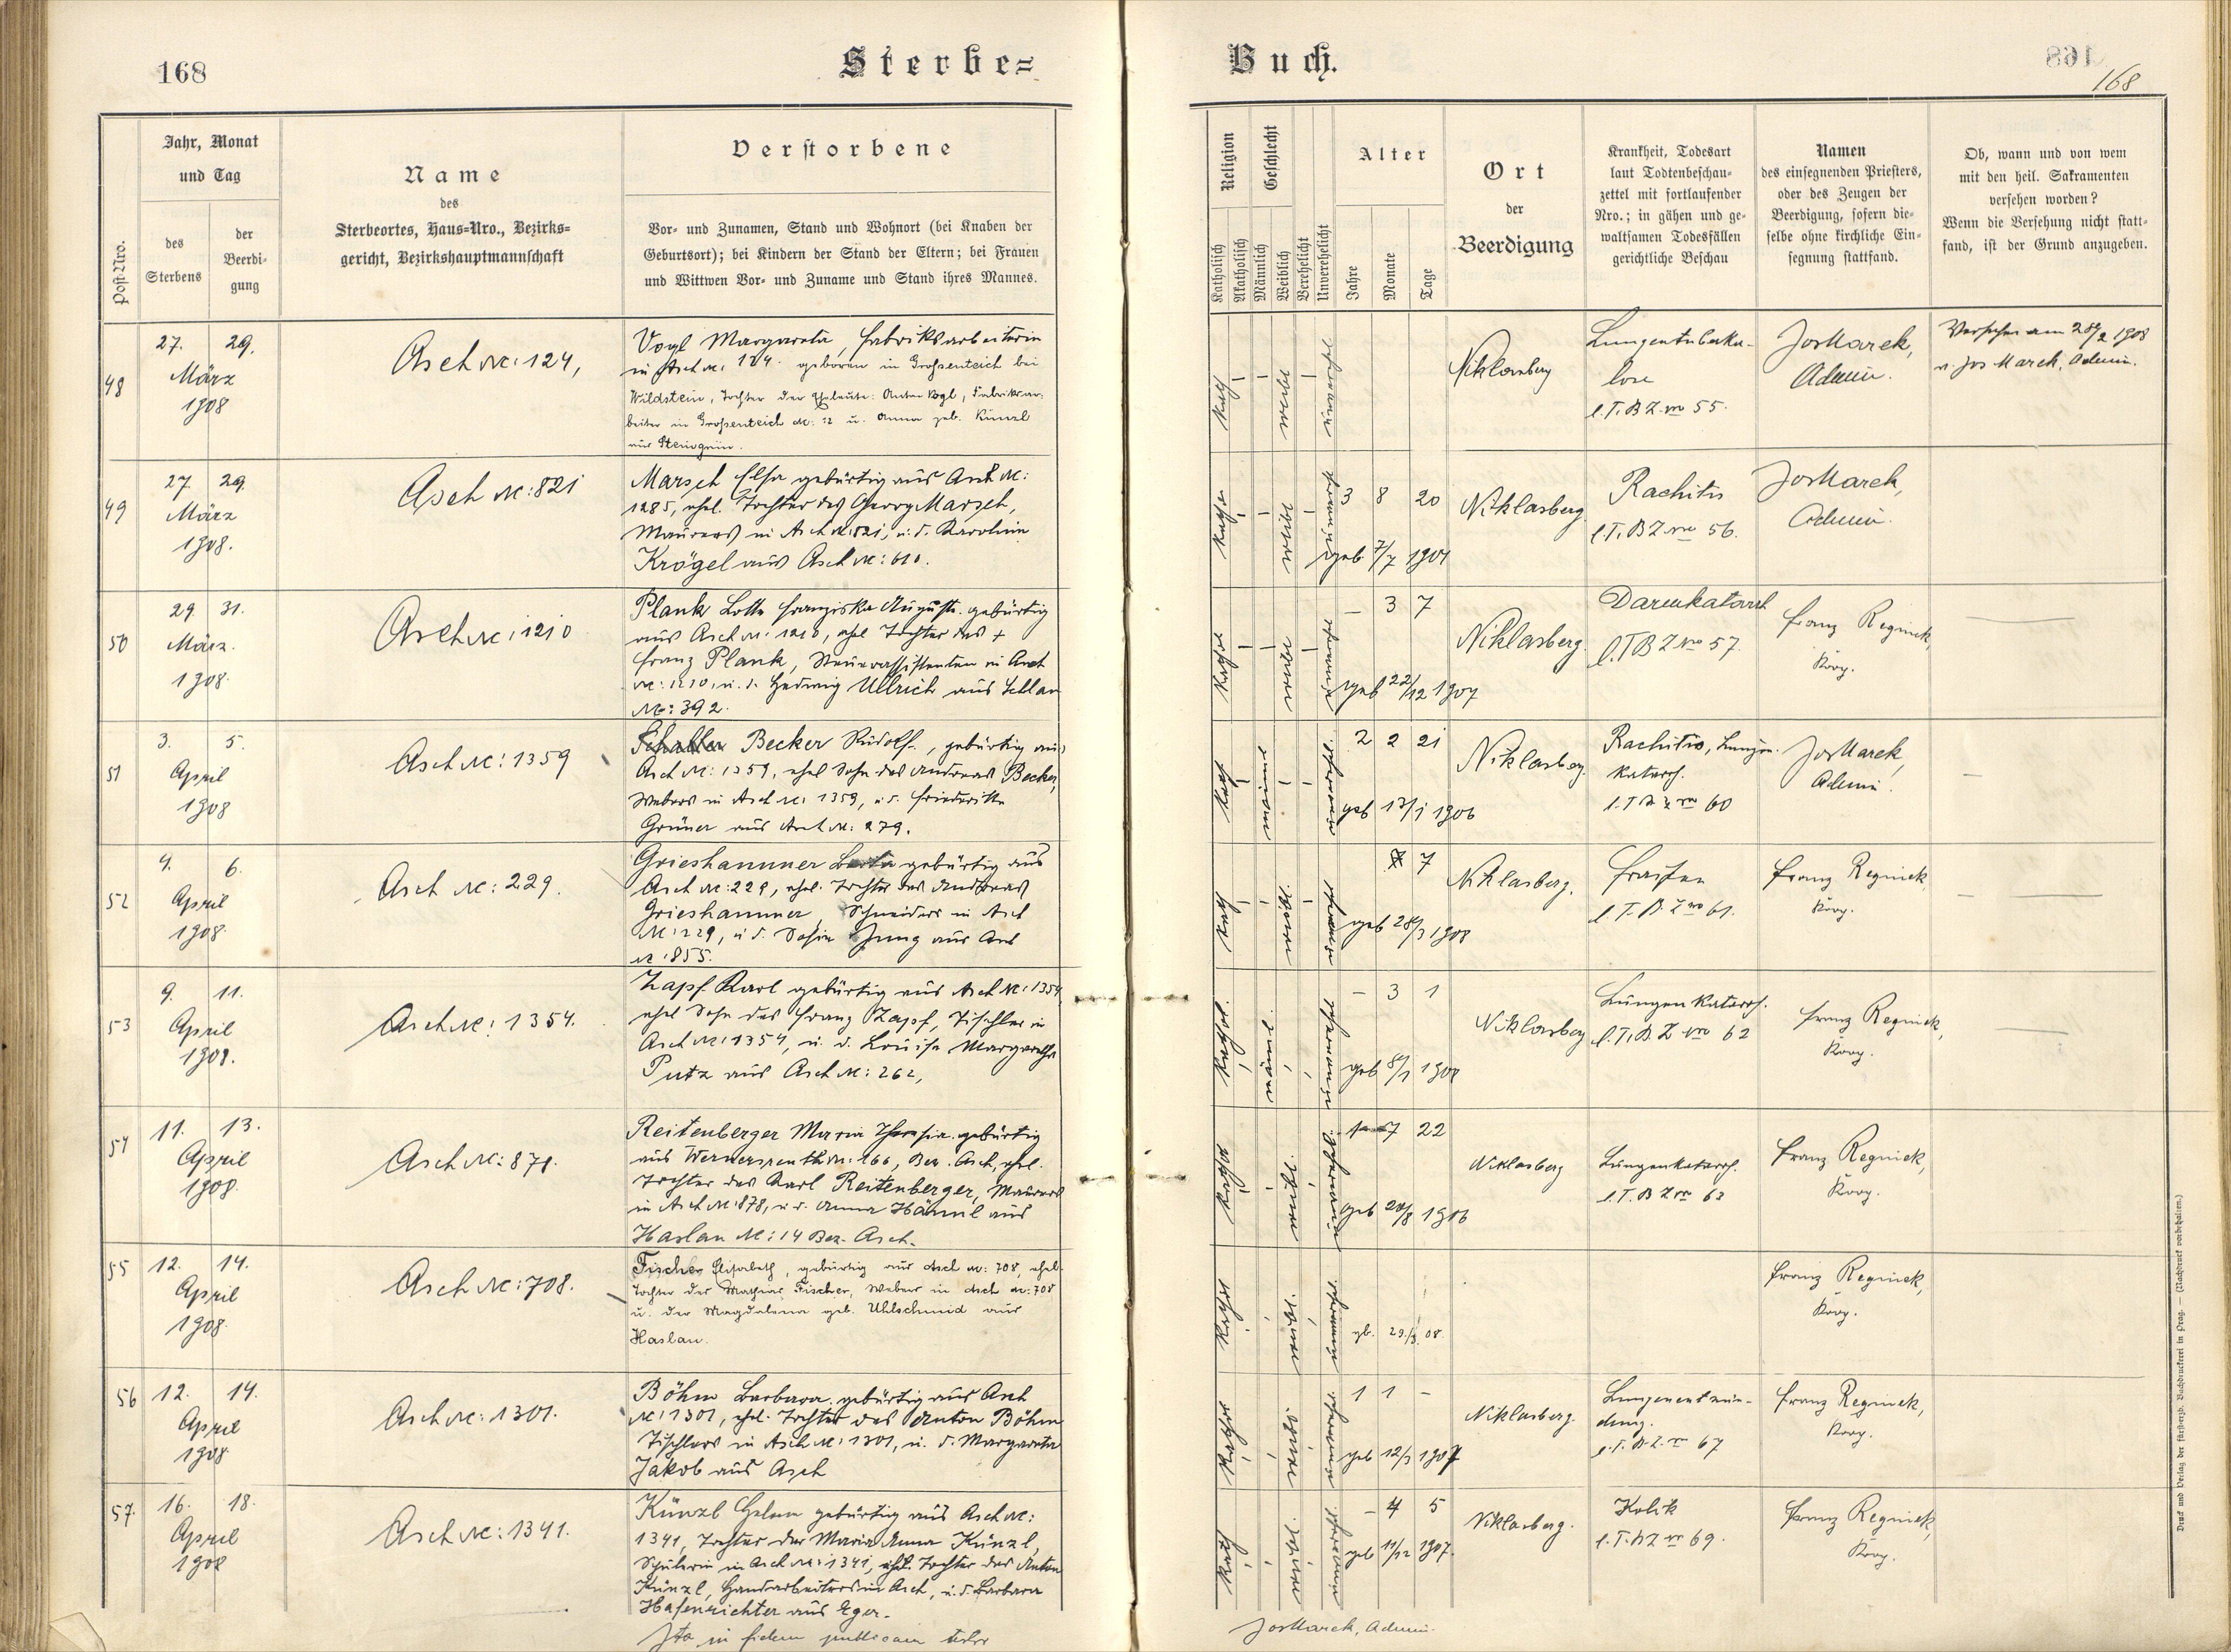 168
Sterbe=
Post-Nro.
Jahr, Monat
und Tag
des
Sterbens
der
Beerdi-
gung
Name
des
Sterbeortes, Haus-Nro., Bezirks-
gericht, Bezirkshauptmannschaft
Verstorbene
Vor- und Zunamen, Stand und Wohnort (bei Knaben der
Geburtsort); bei Kindern der Stand der Eltern; bei Frauen
und Wittwen Vor- und Zuname und Stand ihres Mannes.
48
27. 29.
März
1908
Asch Nr: 124,
Vogl Margareta, Fabriksarbeiterin
in Asch Nr. 124. geboren in Großenteich bei
Wildstein, Tochter der Eheleute: Anton Vogl, Fabriksar-
beiter in Großenteich Nr: 12 u. Anna geb. Künzl
aus Steingrün.
49
27. 29.
März
1908.
Asch Nr: 821
Marsch Elsa gebürtig aus Asch Nr:
1285, ehel. Tochter des Georg Marsch,
Maurers in Asch Nr: 821, u. d. Karolina
Krögel aus Asch Nr: 610.
50
29 31.
März.
1908.
Asch Nr: 1210
Plank Lotte Franziska Auguste gebürtig
aus Asch Nr: 1210, ehel Tochter des +
Franz Plank, Steuerassistenten in Asch
Nr: 1210, u. d. Hedwig Ullrich aus Schlan
Nr: 392.
51
3. 5.
April
1908
Asch Nr: 1359
Becker Rudolf., gebürtig aus
Asch Nr: 1359, ehel Sohn des Andreas Becker,
Webers in Asch Nr: 1359, u. d. Friederike
Grüner aus Asch Nr: 279.
52
4. 6.
April
1908.
Asch Nr: 229.
Grieshammer Berta gebürtig aus
Asch Nr: 229, ehel. Tochter des Andreas
Grieshammer, Schneiders in Asch
Nr: 229, u d. Sofia Jung aus Asch
Nr: 855.
53
9. 11.
April
1908.
Asch Nr: 1354.
Zapf Karl gebürtig aus Asch Nr: 1354,
ehel Sohn des Franz Zapf, Tischler in
Asch Nr: 1354, u. d. Louise Margarethe
Putz aus Asch Nr: 262,
54
11. 13.
April
1908.
Asch Nr: 878.
Reitenberger Maria Theresia gebürtig
aus Wernersreuth Nr: 166, Bez. Asch, ehel.
Tochter des Karl Reitenberger, Maurers
in Asch Nr: 878, u. d. Anna Hämml aus
Haslau Nr: 14 Bez. Asch.
55
12. 14.
April
1908.
Asch Nr: 708.
Fischer Elisabeth, gebürtig aus Asch Nr: 708, ehel.
Tochter des Mathias Fischer, Weber in Asch Nr: 708
u. der Magdalena geb. Uhlschmid aus
Haslau.
56
12. 14.
April
1908
Asch Nr: 1301.
Böhm Barbara gebürtig aus Asch
Nr: 1301, ehel. Tochter des Anton Böhm
Tischlers in Asch Nr: 1301, u. d. Margareta
Jakob aus Asch
57.
16. 18.
April
1908
Asch Nr: 1341.
Künzl Helena gebürtig aus Asch Nr:
1341, Tochter der Maria Anna Künzl,
in Asch Nr: 1341, ehel. Tochter des Anton
Künzl, Handarbeiters in Asch, u. d. Barbara
Hafenrichter aus Eger.
Ita in fidem publicam testor
Buch.
168
Religion
Katholisch
Akatholisch
Geschlecht
Männlich
Weiblich
Verehelicht
Unverehelicht
Alter
Jahre
Monate
Tage
Ort
der
Beerdigung
Krankheit, Todesart
laut Todtenbeschau-
zettel mit fortlaufender
Nro.; in gähen und ge-
waltsamen Todesfällen
gerichtliche Beschau
Namen
des einsegnenden Priesters,
oder des Zeugen der
Beerdigung, sofern die-
selbe ohne kirchliche Ein-
segnung stattfand.
Ob, wann und von wem
mit den heil. Sakramenten
versehen worden?
Wenn die Versehung nicht statt-
fand, ist der Grund anzugeben.
kath
weibl
unverehel
Niklasberg
Lungentuberku-
lose
l. T. B Z. nro 55.
Jos Marek,
Admin.
Versehen am 28/2 1908
v. Jos Marek, Admin.
kathol
weibl
3 8 20
geb 7/7 1904
Niklasberg
Rachitis
l. T. B Z nro 56.
Jos Marek,
Admin.
kathol
weibl
unverehel
– 3 7
geb 22/12 1907
Niklasberg.
Darmkatarrh
l. T B Z nro 57.
Franz Reginek,
Koop.
kath
männl
unverehel.
2 2 21
geb 13/1 1906
Niklasberg.
Rachitis, Lungen-
katarrh.
l. T B Z nro 60
Jos Marek,
Admin.
kath
weibl.
unverehel
7
geb 28/3 1908
Niklasberg.
Fraisen
l. T. B. Z nro 61.
Franz Reginek
Koop.
kathol.
männl.
unverehel
– 3 1
geb 8/1 1908
Niklasberg
Lungenkatarrh.
l. T. B. Z nro 62
Franz Reginek,
Koop.
kathol
weibl.
unverehel
1 7 22
geb 20/8 1906
Niklasberg
Lungenkatarrh.
l. T. B Z nro 63
Franz Reginek,
Koop.
kathol
weibl.
unverehel
gb. 29./3. 08.
Franz Reginek,
Koop.
kathol
weibl
unverehel
1 1 –
geb 12/3 1907
Niklasberg.
Lungenentzün-
dung.
l. T. B. Z. nro 67
Franz Reginek,
Koop.
kath
weibl.
unverehel
– 4 5
geb 11/12 1907.
Niklasberg.
Kolik
l. T. B Z nro 69.
Franz Reginek,
Koop.
Jos Marek, Admin.
Druck und Verlag der fürsterzb. Buchdruckerei in Prag. — (Nachdruck vorbehalten.)